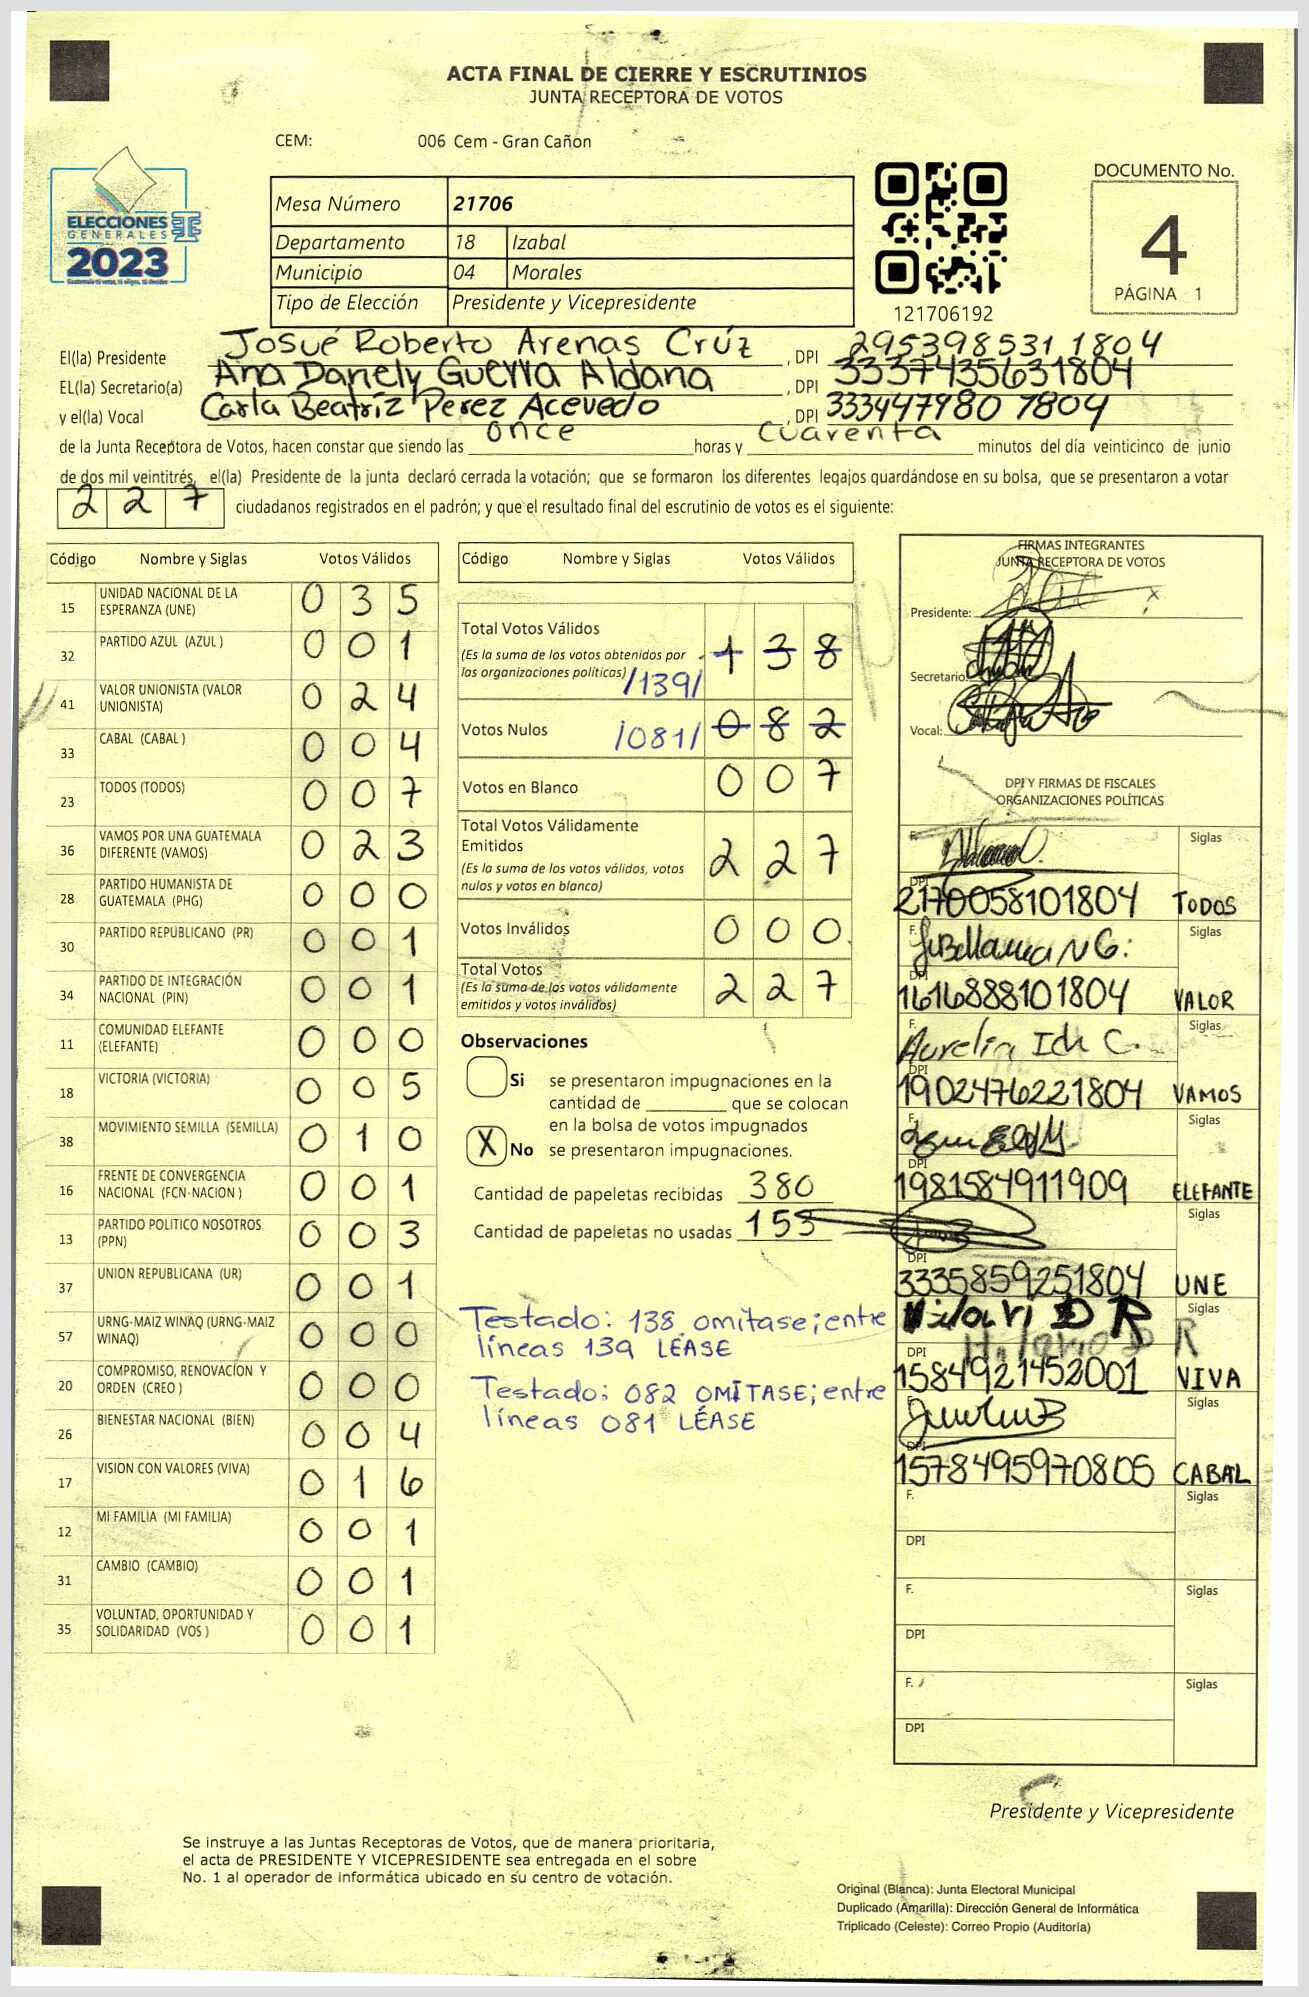 ACTA FINAL DE CIERRE Y ESCRUTINIOS
JUNTA RECEPTORA DE VOTOS
CEM: 006 Cem - Gran Cañon
ELECCIONES
GENERALES
2023
Mesa Número 21706
Departamento 18 Izabal
Municipio 04 Morales
Tipo de Elección Presidente y Vicepresidente
121706192
DOCUMENTO No.
4
PÁGINA 1
El(la) Presidente Josué Roberto Arenas Crúz, DPI 295398531 1804
EL(la) Secretario(a) Ana Danely Guerra Aldana, DPI 3337435631804
y el(la) Vocal Carla Beatríz Perez Acevedo, DPI 333447980 1804
de la Junta Receptora de Votos, hacen constar que siendo las once horas y cuarenta minutos del día veinticinco de junio
de dos mil veintitrés, el(la) Presidente de la junta declaró cerrada la votación; que se formaron los diferentes legajos guardándose en su bolsa, que se presentaron a votar
227 ciudadanos registrados en el padrón; y que el resultado final del escrutinio de votos es el siguiente:
Código Nombre y Siglas Votos Válidos
15 UNIDAD NACIONAL DE LA ESPERANZA (UNE) 0 3 5
32 PARTIDO AZUL (AZUL ) 0 0 1
41 VALOR UNIONISTA (VALOR UNIONISTA) 0 2 4
33 CABAL (CABAL ) 0 0 4
23 TODOS (TODOS) 0 0 7
36 VAMOS POR UNA GUATEMALA DIFERENTE (VAMOS) 0 2 3
28 PARTIDO HUMANISTA DE GUATEMALA (PHG) 0 0 0
30 PARTIDO REPUBLICANO (PR) 0 0 1
34 PARTIDO DE INTEGRACIÓN NACIONAL (PIN) 0 0 1
11 COMUNIDAD ELEFANTE (ELEFANTE) 0 0 0
18 VICTORIA (VICTORIA) 0 0 5
38 MOVIMIENTO SEMILLA (SEMILLA) 0 1 0
16 FRENTE DE CONVERGENCIA NACIONAL (FCN-NACION ) 0 0 1
13 PARTIDO POLITICO NOSOTROS (PPN) 0 0 3
37 UNION REPUBLICANA (UR) 0 0 1
57 URNG-MAIZ WINAQ (URNG-MAIZ WINAQ) 0 0 0
20 COMPROMISO, RENOVACION Y ORDEN (CREO ) 0 0 0
26 BIENESTAR NACIONAL (BIEN) 0 0 4
17 VISION CON VALORES (VIVA) 0 1 6
12 MI FAMILIA (MI FAMILIA) 0 0 1
31 CAMBIO (CAMBIO) 0 0 1
35 VOLUNTAD, OPORTUNIDAD Y SOLIDARIDAD (VOS ) 0 0 1
Código Nombre y Siglas Votos Válidos
Total Votos Válidos
(Es la suma de los votos obtenidos por
las organizaciones políticas) /139/ 1 3 8
Votos Nulos /081/ 0 8 2
Votos en Blanco 0 0 7
Total Votos Válidamente
Emitidos 2 2 7
(Es la suma de los votos válidos, votos
nulos y votos en blanco)
Votos Inválidos 0 0 0
Total Votos
(Es la suma de los votos válidamente
emitidos y votos inválidos) 2 2 7
Observaciones
Si se presentaron impugnaciones en la
cantidad de ________ que se colocan
en la bolsa de votos impugnados
X No se presentaron impugnaciones.
Cantidad de papeletas recibidas 380
Cantidad de papeletas no usadas 153
Testado: 138 omítase; entre
líneas 139 LÉASE
Testado: 082 OMÍTASE; entre
líneas 081 LÉASE
FIRMAS INTEGRANTES
JUNTA RECEPTORA DE VOTOS
Presidente:
Secretario:
Vocal:
DPI Y FIRMAS DE FISCALES
ORGANIZACIONES POLÍTICAS
F. Siglas
DPI 2170058101804 TODOS
F. Siglas
DPI 1616888101804 VALOR
F. Aurelia Ich C. Siglas
DPI 1902476221804 VAMOS
F. Siglas
DPI 1981584911909 ELEFANTE
Siglas
DPI 3335859251804 UNE
Hilario D R Siglas
DPI 1584921452001 VIVA
Siglas
DPI 1578495970805 CABAL
F. Siglas
DPI
F. Siglas
DPI
F. Siglas
DPI
Presidente y Vicepresidente
Se instruye a las Juntas Receptoras de Votos, que de manera prioritaria,
el acta de PRESIDENTE Y VICEPRESIDENTE sea entregada en el sobre
No. 1 al operador de informática ubicado en su centro de votación.
Original (Blanca): Junta Electoral Municipal
Duplicado (Amarilla): Dirección General de Informática
Triplicado (Celeste): Correo Propio (Auditoría)